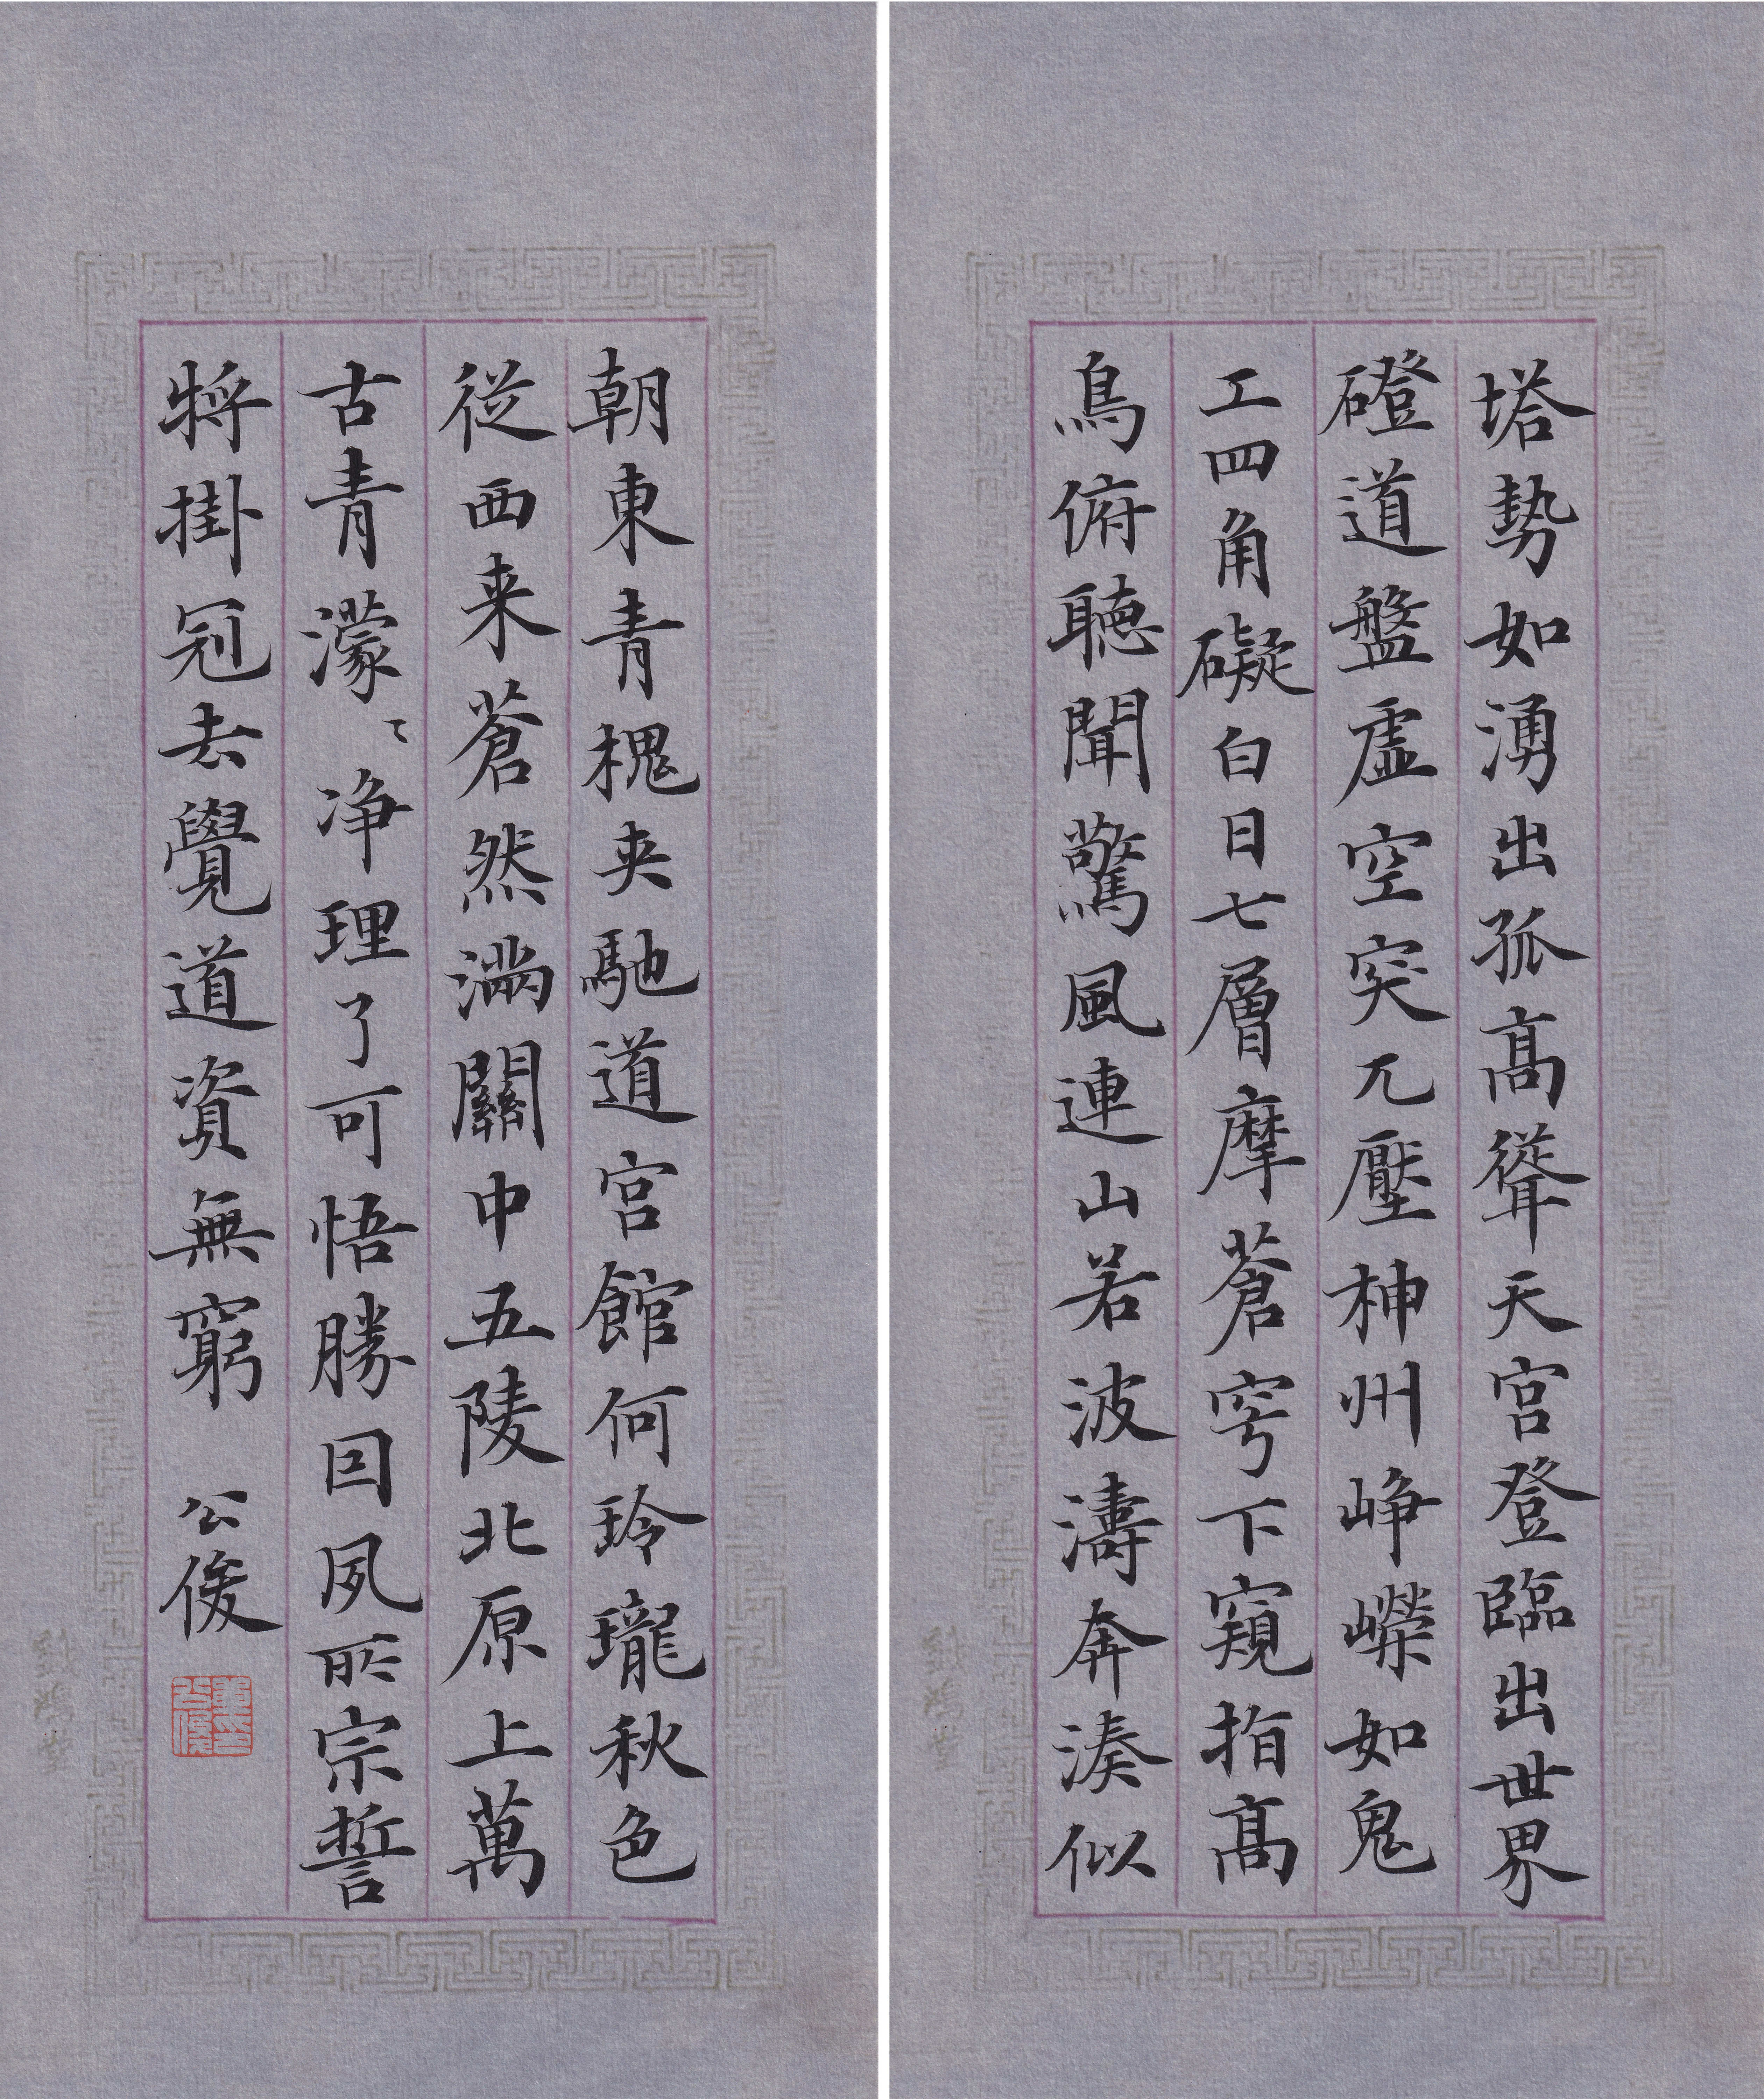 塔勢如湧出孤高聳天宮登臨出世界
磴道盤虛空突兀壓神州崢嶸如鬼
工四角礙白日七層摩蒼穹下窺指高
鳥俯聽聞驚風連山若波濤奔湊似
朝東青槐夾馳道宮館何玲瓏秋色
從西来蒼然滿關中五陵北原上萬
古青濛〻净理了可悟勝因夙所宗誓
將掛冠去覺道資無窮 公俊